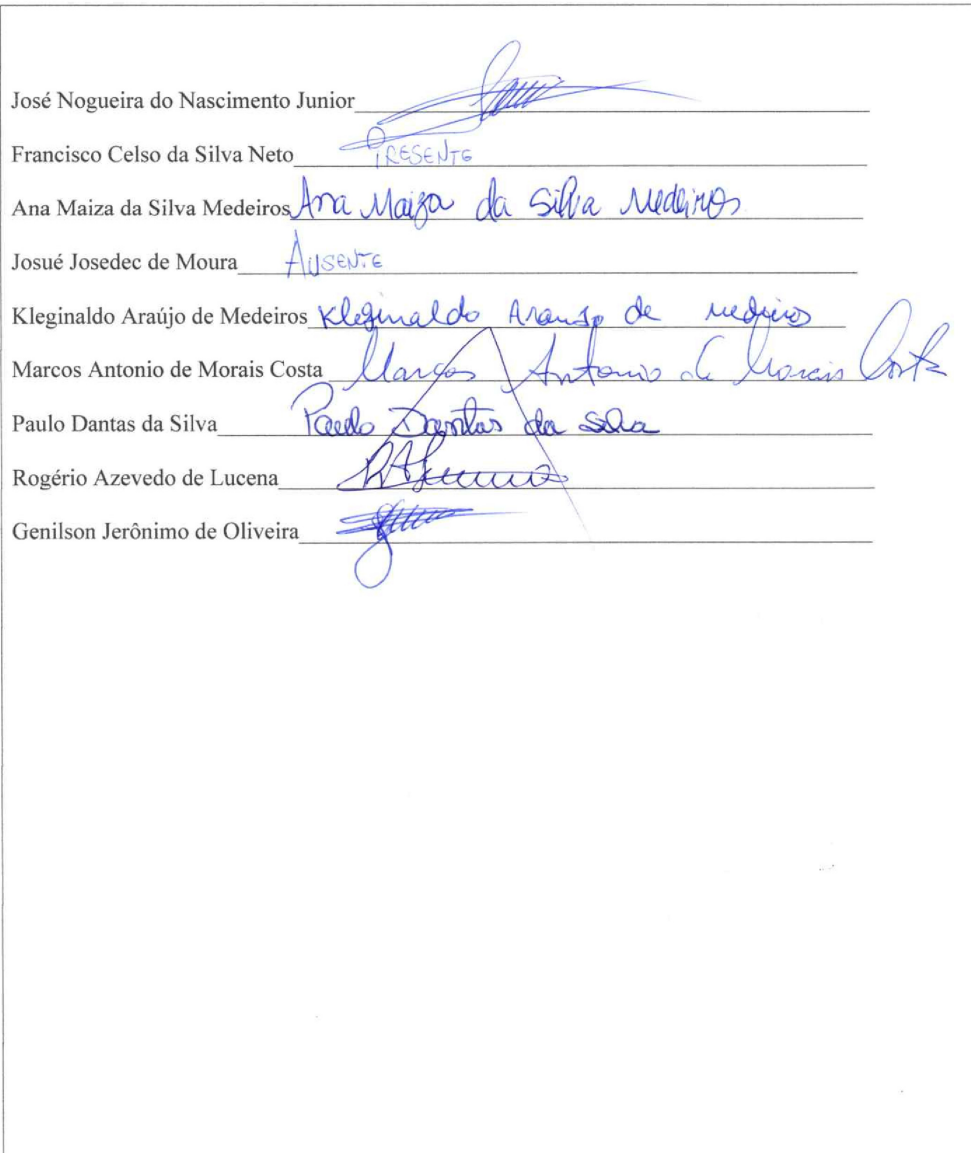 José Nogueira do Nascimento Junior
Francisco Celso da Silva Neto PRESENTE
Ana Maiza da Silva Medeiros Ana Maiza da Silva Medeiros
Josué Josedec de Moura AUSENTE
Kleginaldo Araújo de Medeiros Kleginaldo Araujo de medeiros
Marcos Antonio de Morais Costa Marcos Antonio de Morais Costa
Paulo Dantas da Silva Paulo Dantas da Silva
Rogério Azevedo de Lucena
Genilson Jerônimo de Oliveira